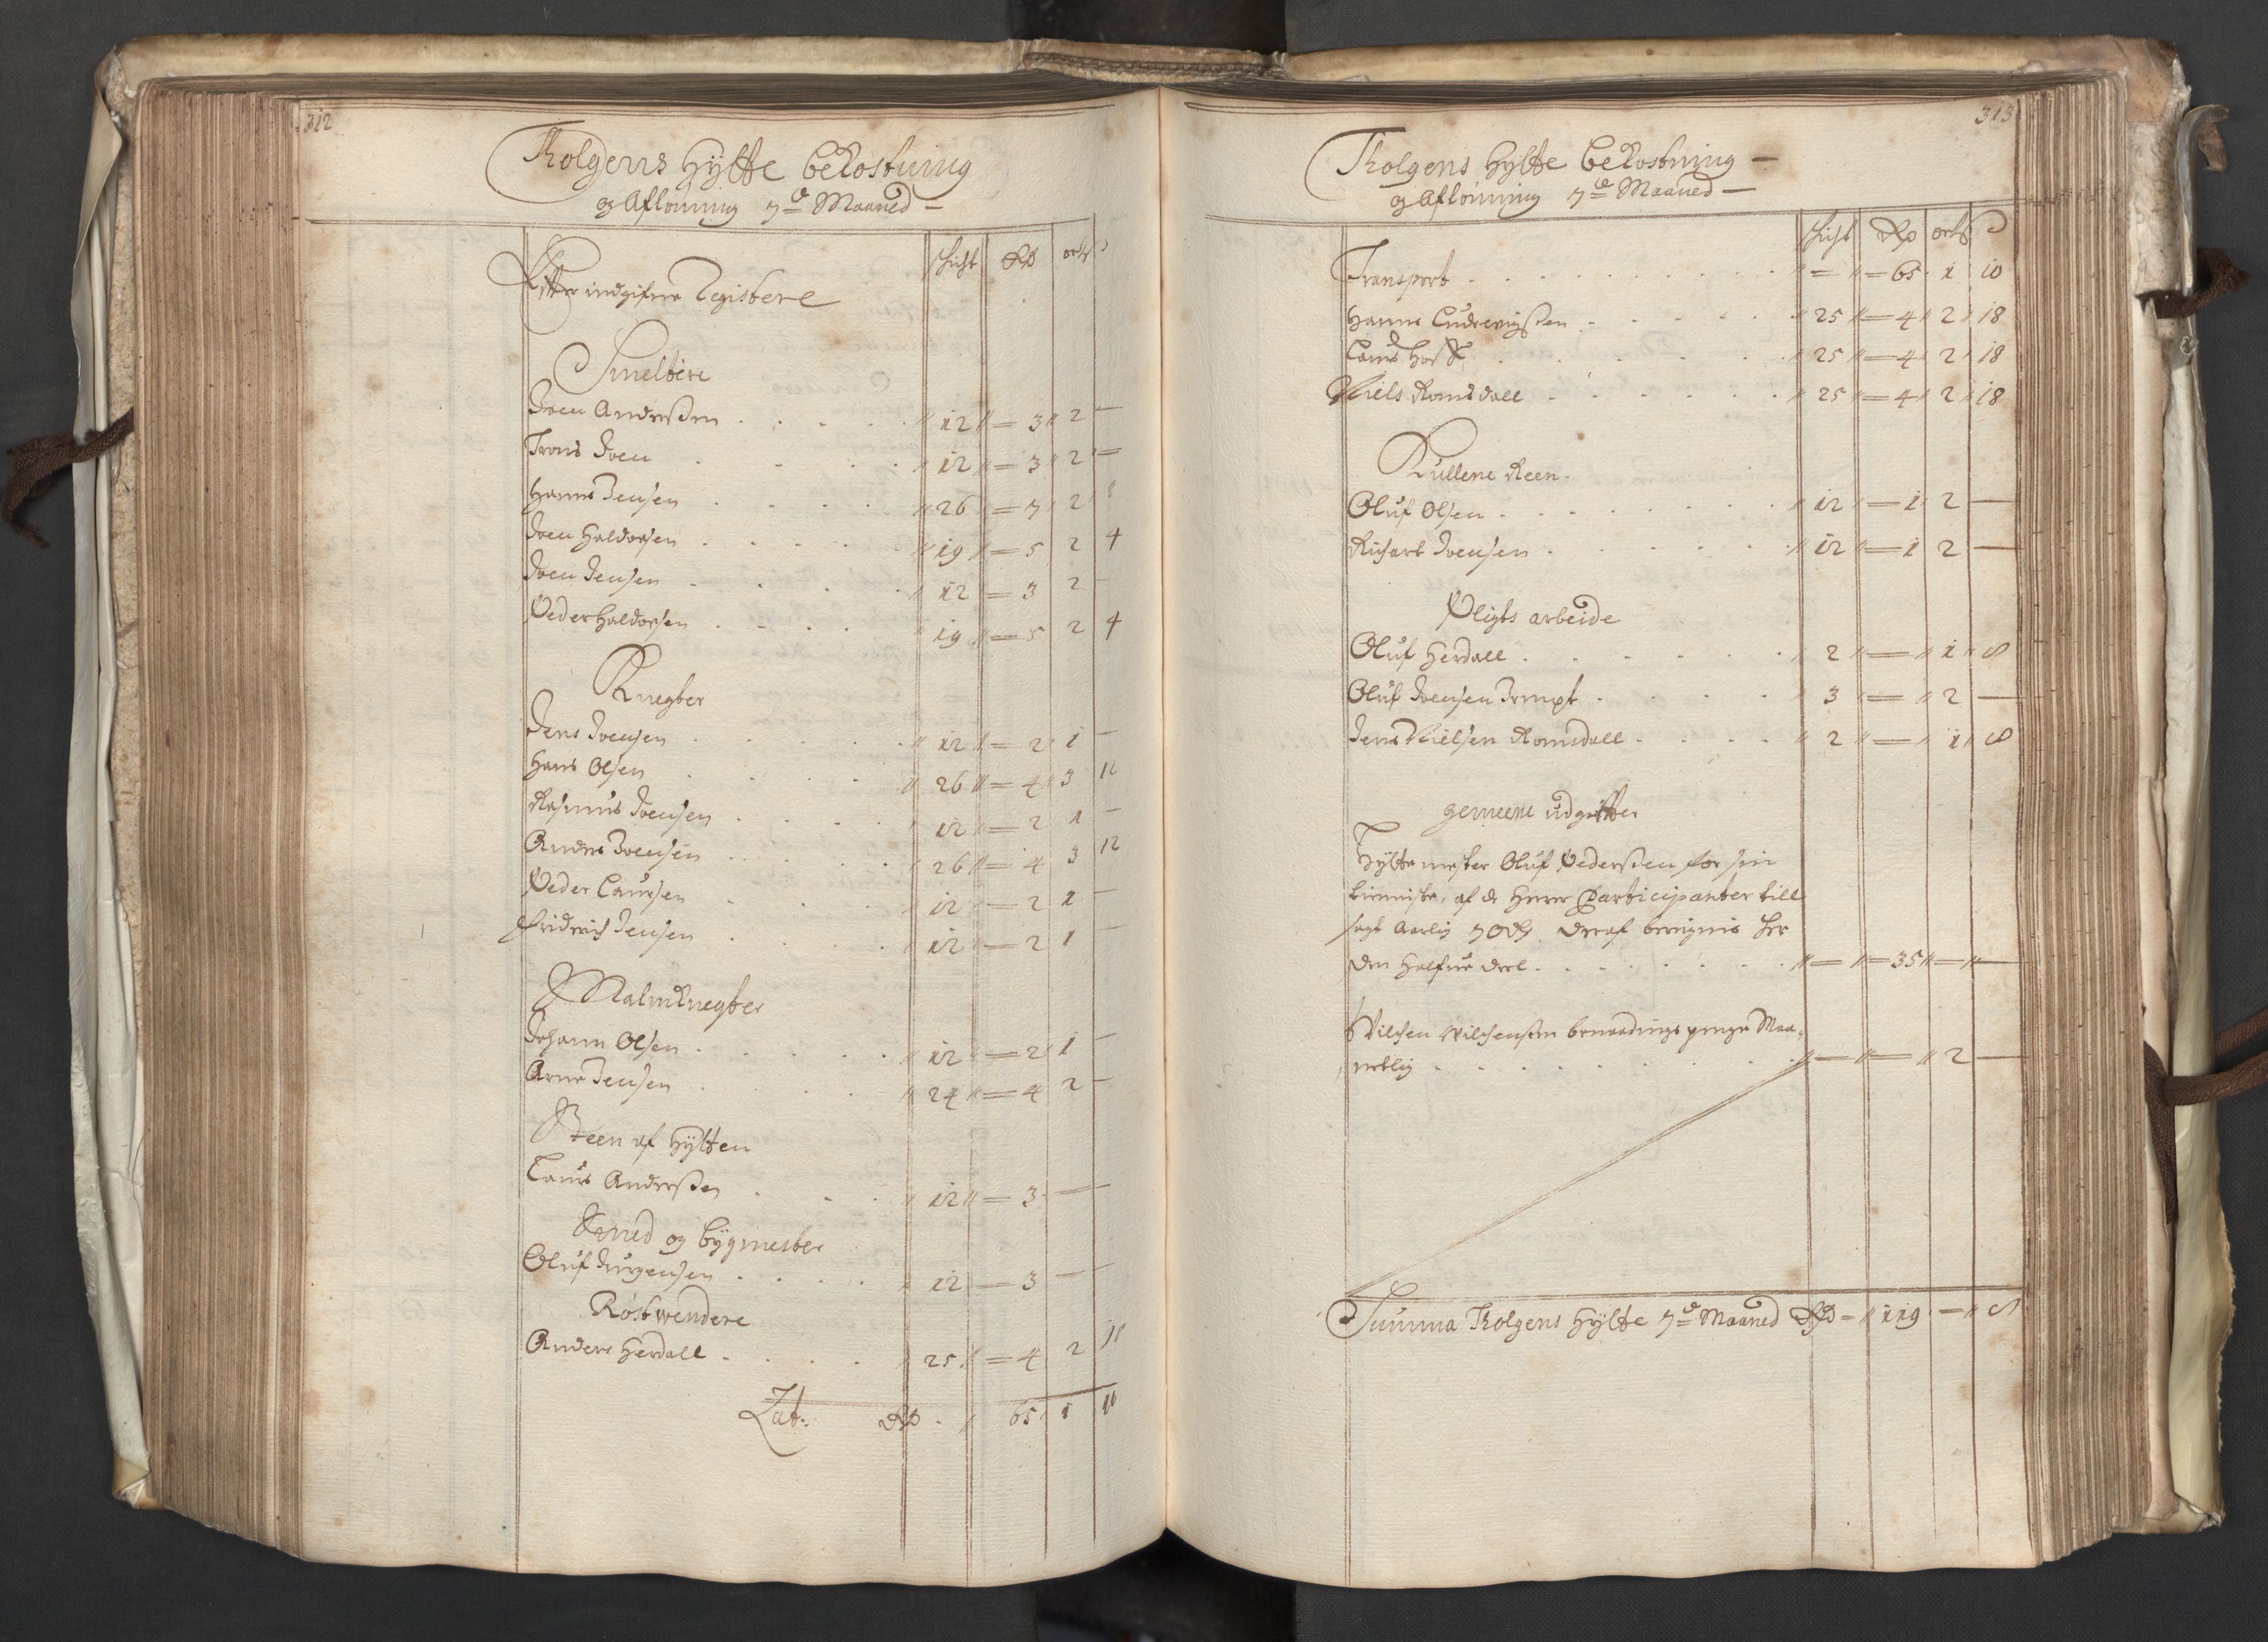 312
Tholgens Hytte bekostning
og Aflönning 7de Maaned —
schicht Rd ort s
Efter indgifne Registere
Smeltere
Joen Anderßen . . . . . 12 = 3 2 —
Trons Joen . . . . 12 = 3 2 —
Hanns Jensen . . . . 26 = 7 2 8
Joen Haldorsen . . . . 19 = 5 2 4
Joen Jensen . . . . 12 = 3 2 —
Peder Haldorsen . . . . 19 = 5 2 4
Knegter
Jens Joensen . . . . 12 = 2 1 —
Hans Olsen . . . . 26 = 4 3 12
Rasmus Joensen . . . . 12 = 2 1 —
Anders Joensen . . . . 26 = 4 3 12
Peder Laursen . . . . 12 = 2 1 —
Fridrich Jensen . . . . 12 = 2 1 —
Malmknegter
Johann Olsen . . . . . 12 = 2 1 —
Arne Jensen . . . 24 = 4 2 —
Steen af Hytten
Laurs Anderßen . . . 12 = 3 — —
Smed og bygmester
Oluf Jurgensen . . . . 12 = 3 — —
Röstwendere
Anders Herdall . . . . 25 = 4 2 18
Lat: Rd . 65 1 10
313
Tholgens Hytte bekostning —
og Aflönning 7de Maaned —
schicht Rd ort s
Transport . . . . . . . . = = 65 1 10
Hanns Ludewigßen . . . . . 25 = 4 2 18
Laurs Hoff . . . . . 25 = 4 2 18
Niels Romsdall . . . . . 25 = 4 2 18
Kullene Reen.
Oluf Olsen . . . . . . . . 12 = 1 2 —
Richart Joensen . . . . . . 12 = 1 2 —
Pligts arbeide
Oluf Herdall . . . . . . 2 = 1 8
Oluf Joensen . . . . 3 = 2 —
Jens Nielsen Romsdall . . . . 2 = 1 8
gemeene udgifter
Hyttemester Oluf Pederßen for sin
tienniste, af de Herrer Participanter till
sagt Aarlig 70 Rd, deraf beregnis her
den halfue deel . . . . . . . = = 35 — —
Wilchen Wilchensen benaadings penge Maa¬
netlig . . . . . . . . = = 2 —
Summa Tholgens Hytte 7de Maaned Rd = 119 — 8